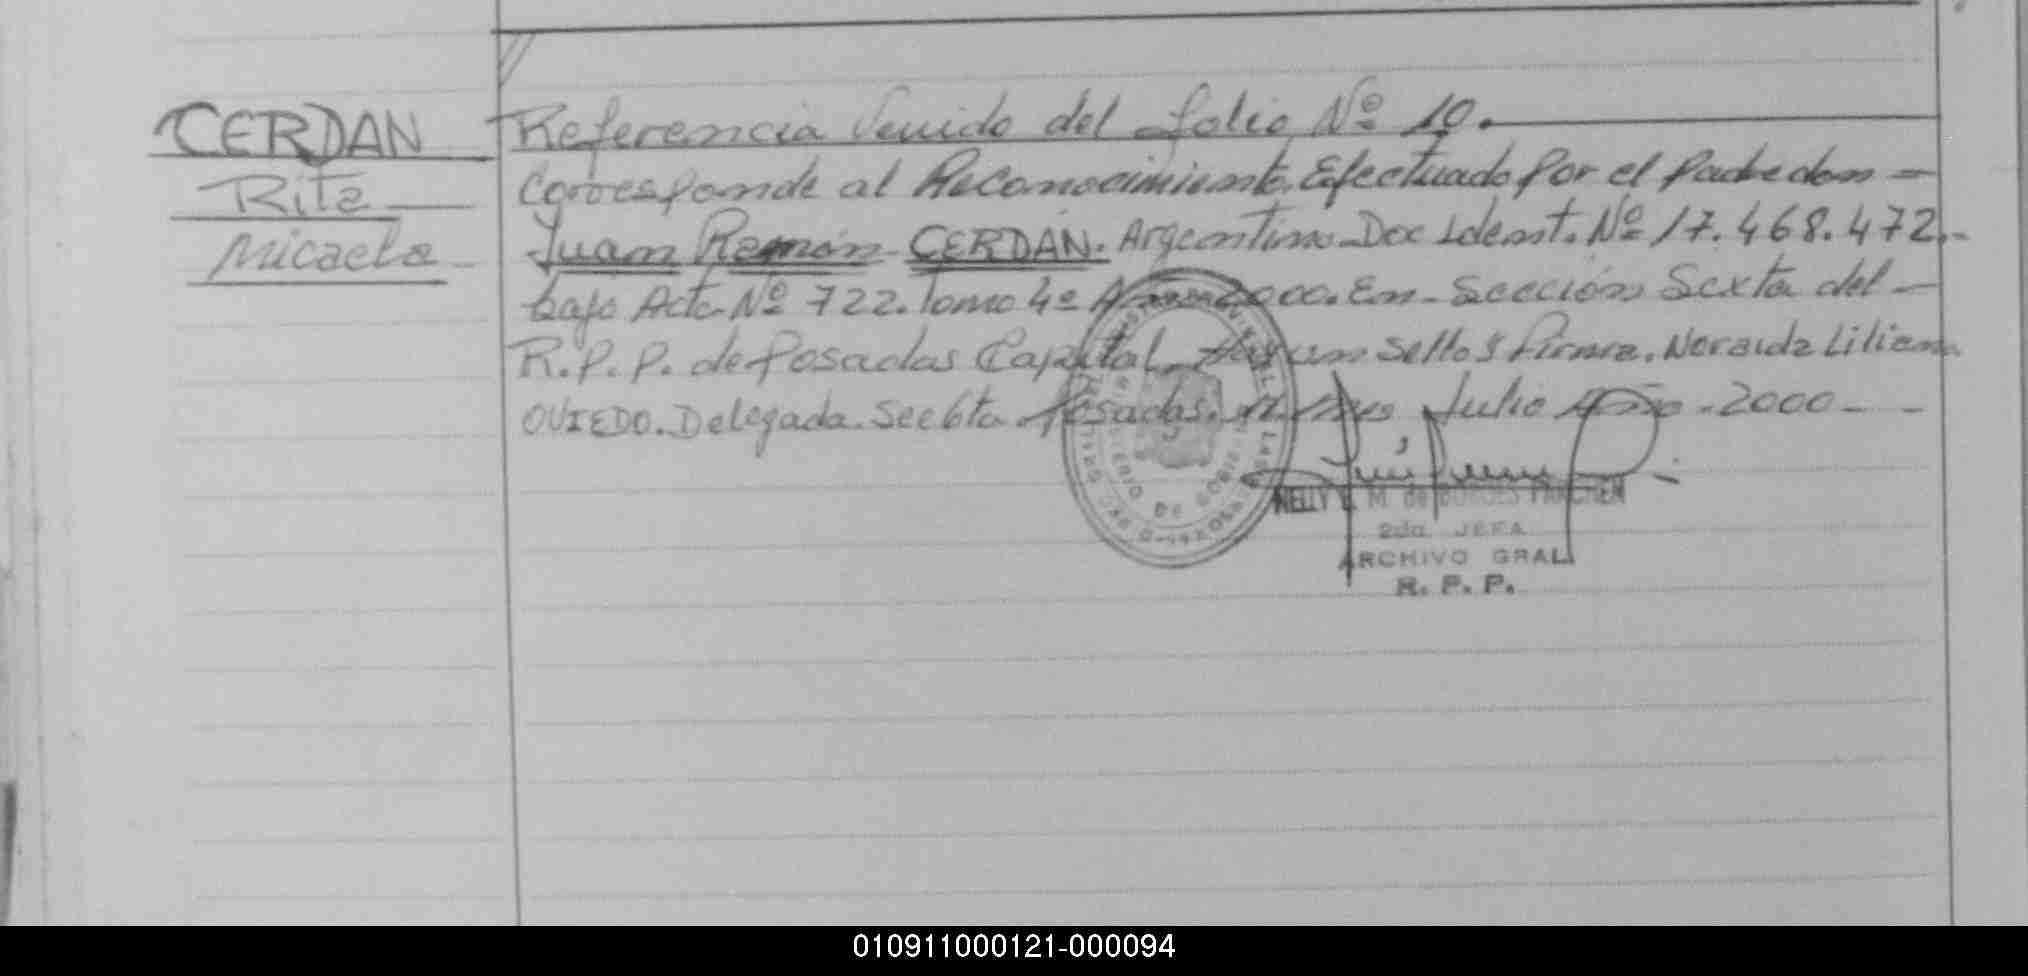 CERDAN
Rita
Micaela
Referencia Venido del folio Nº 10.
Corresponde al Reconocimiento Efectuado por el padre don
Juan Ramón CERDAN. Argentino Doc Ident. Nº 17.468.472.
bajo Acta Nº 722. Tomo 4º Año 2000. En Sección Sexta del
R.P.P. de Posadas Capital. Hay un sello y firma. Noraida Liliana
OVIEDO. Delegada. Sec 6ta Posadas. Julio Año 2000
NELLY M. de
2da. JEFA
ARCHIVO GRAL
R. P. P.
010911000121-000094